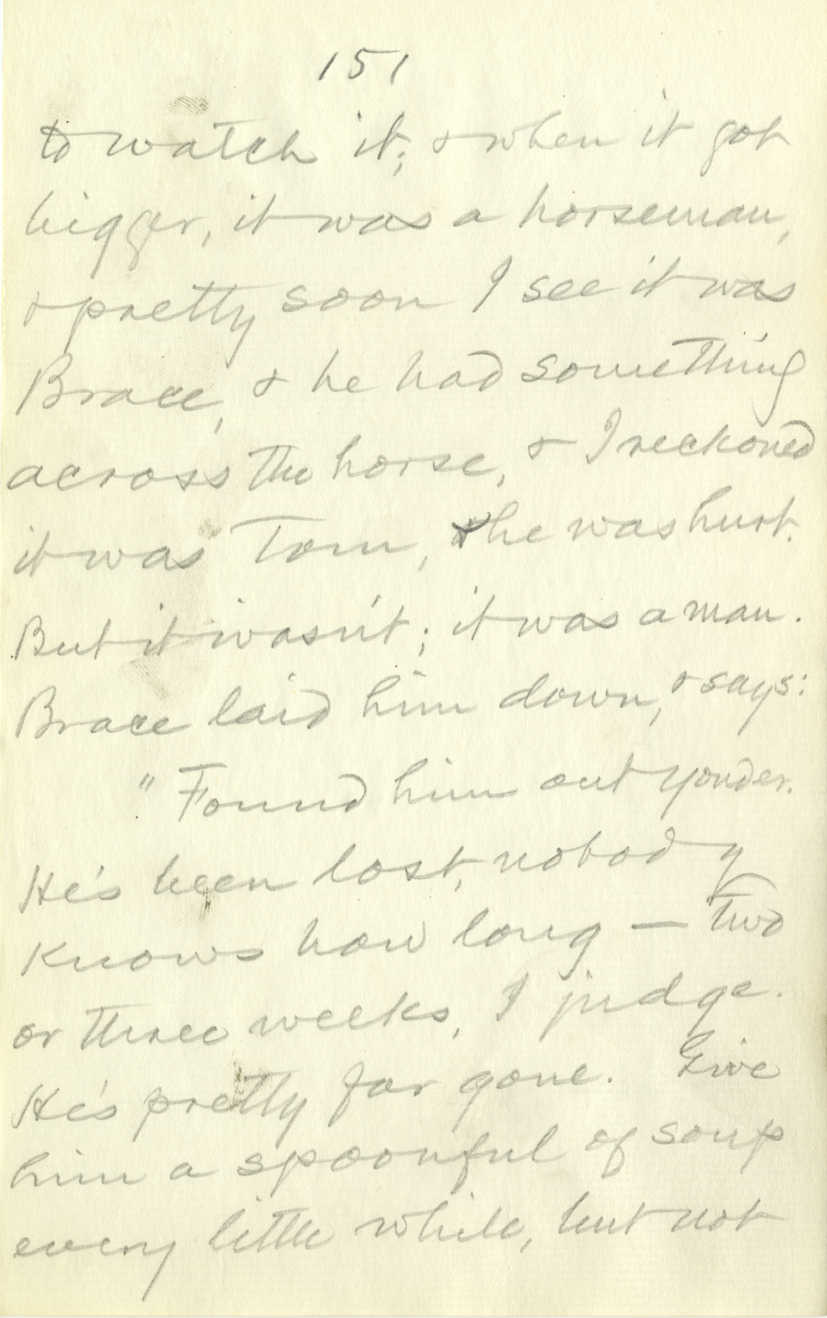 151
to watch it; & when it got
bigger, it was a horseman,
& pretty soon I see it was
Brace, & he had something
across the horse, & I reckoned
it was Tom, & he was hurt.
But it wasn't; it was a man.
Brace laid him down, & says:
"Found him out yonder.
He's been lost, nobody
knows how long — two
or three weeks, I judge.
He's pretty far gone. Give
him a spoonful of soup
every little while, but not